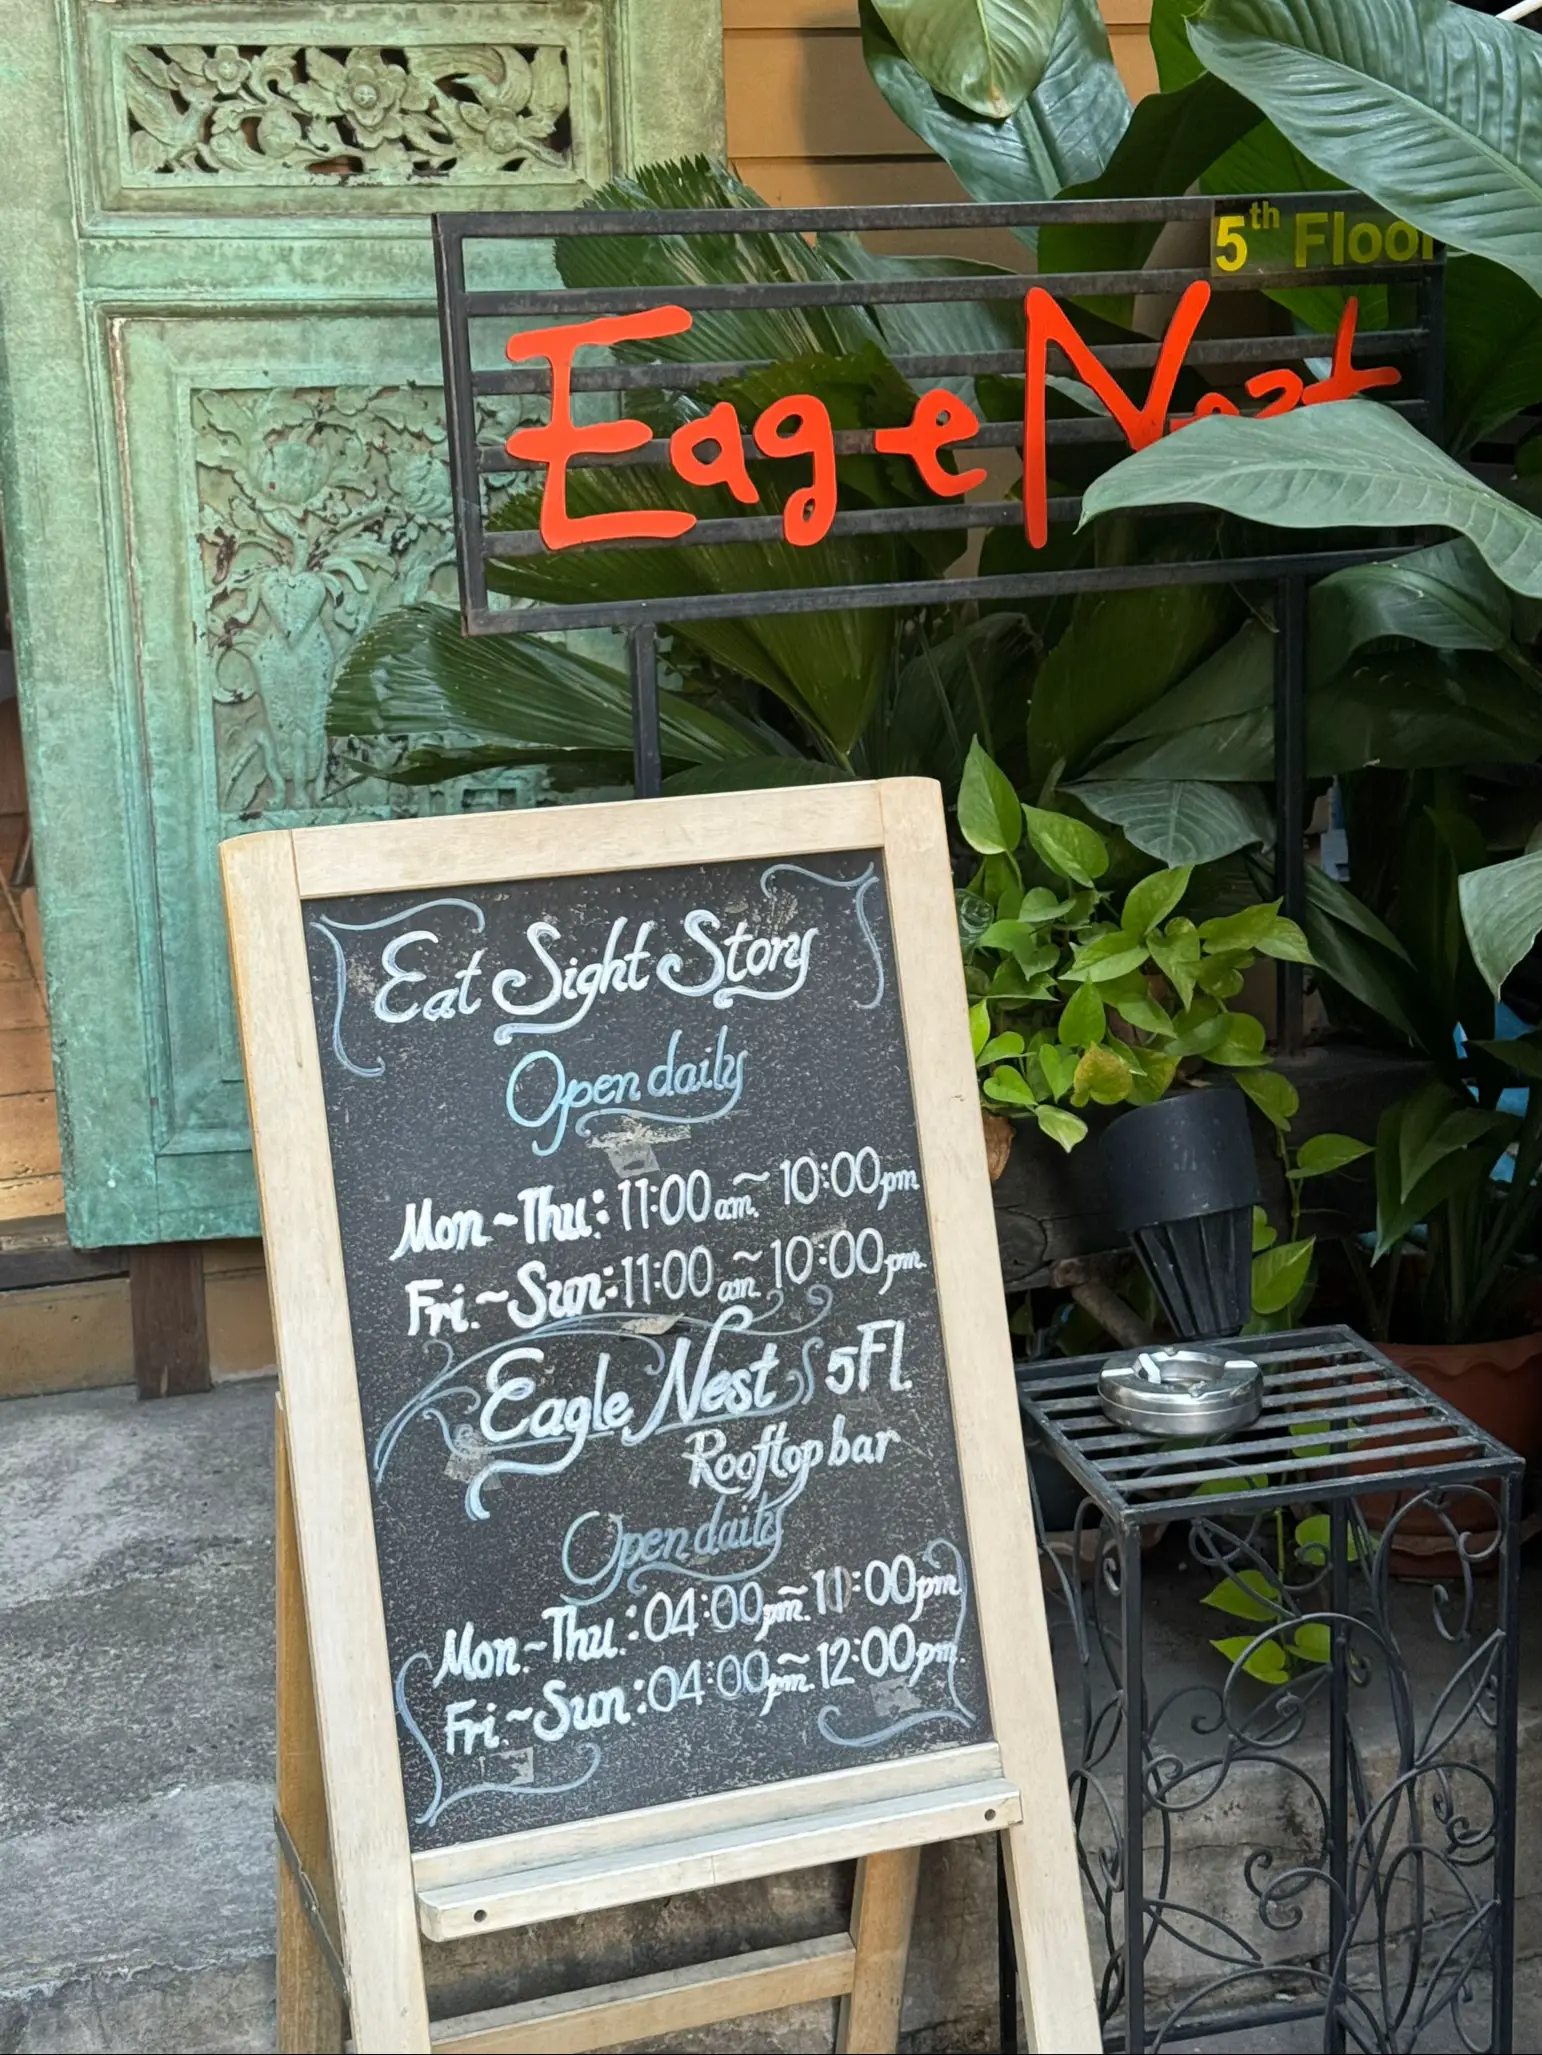 5th Floor
Eagle Nest
Eat Sight Story
Open daily
Mon~Thu: 11:00 am.~ 10:00 pm
Fri.~Sun: 11:00 am.~ 10:00 pm.
Eagle Nest 5Fl.
Rooftop bar
Open daily
Mon.~Thu.: 04:00 pm.~ 11:00 pm
Fri.~Sun: 04:00 pm.~ 12:00 pm.